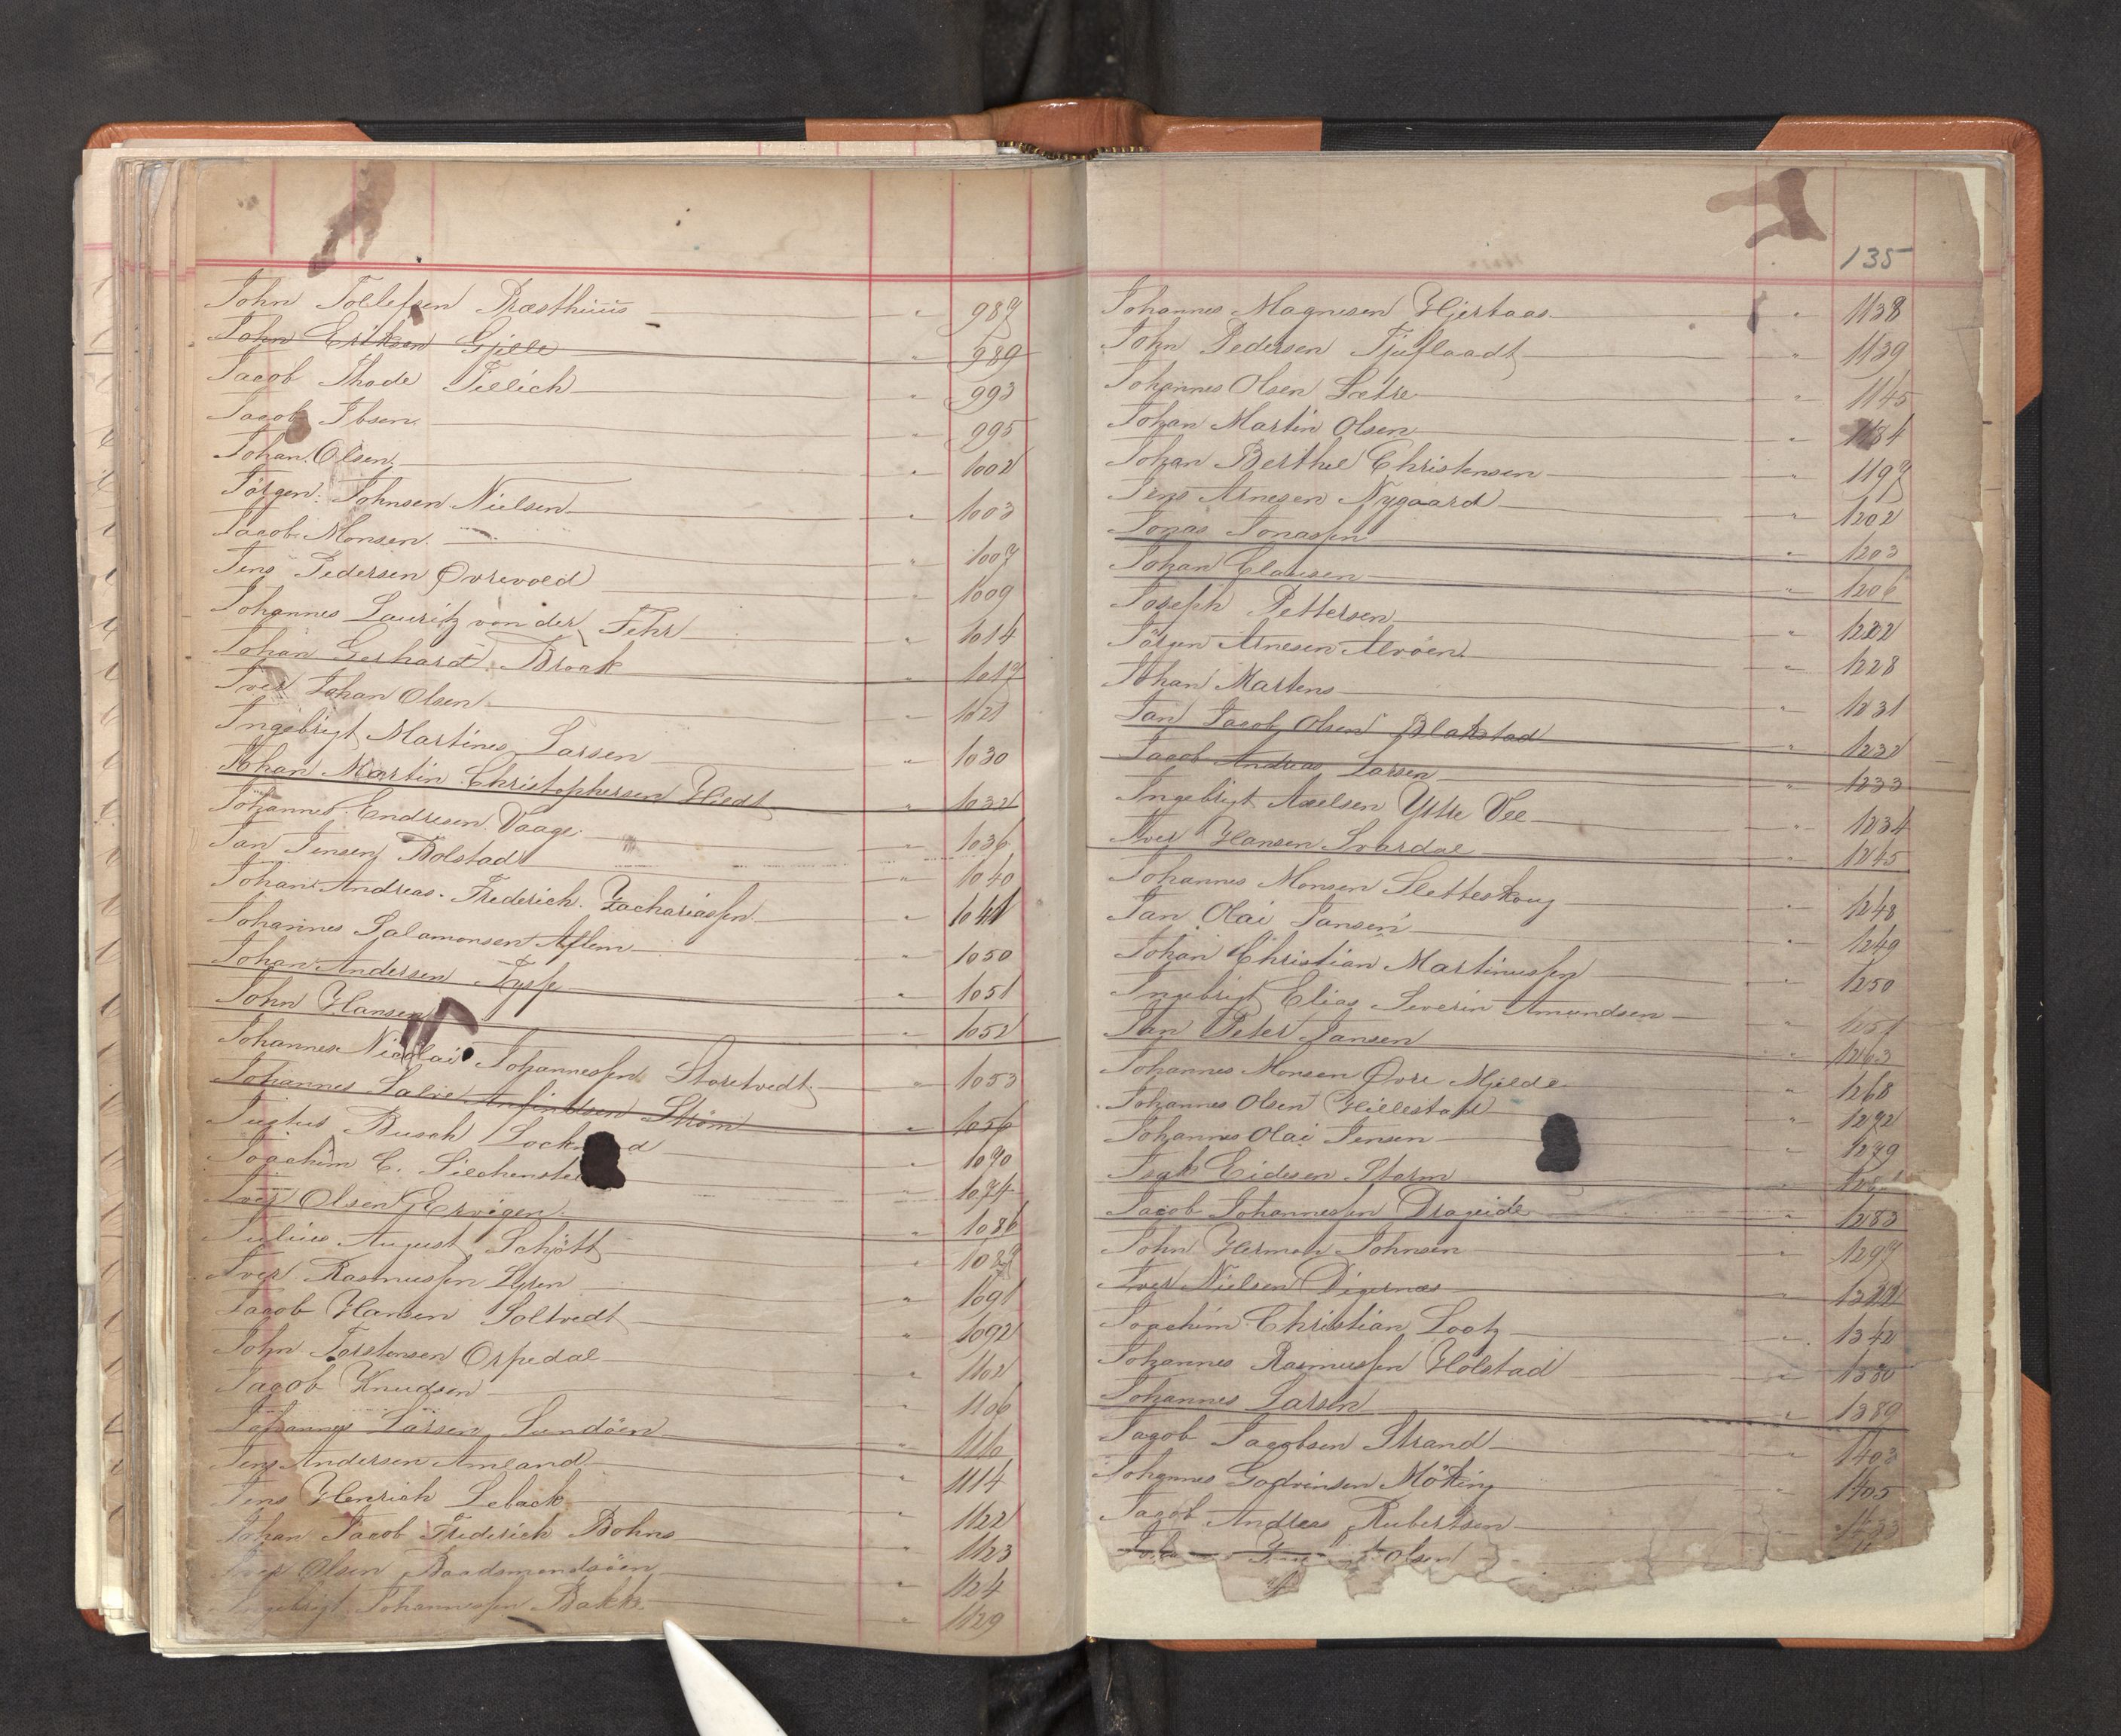 John Tollefsen Præsthuus " 987
John Eriksen Gjelle " 989
Jacob Thode Tillich " 993
Jacob Ibsen " 995
Johan Olsen " 1002
Jörgen Johnsen Nielsen " 1003
Jacob Monsen " 1007
Jens Pedersen Øvrevold " 1009
Johannes Lauritz von der Fehr " 1014
Johan Gerhard Broak " 1017
Iver Johan Olsen " 1021
Ingebrigt Martines Larsen " 1030
Johan Martin Christophersen Hiedt " 1032
Johannes Endresen Vaage " 1036
Jan Jensen Bolstad " 1040
Johan Andreas Frederich Zachariassen " 1041
Johannes Salamonsen Aflem " 1050
Johan Andersen Fysse " 1051
John Hansen " 1052
Johannes Nicolai Johannessen Storetvedt " 1053
Johannes Salve Strøm " 1056
Justus Busch " 1070
Joachim C. " 1074
Iver Olsen Ervigen " 1086
Julius August Schjött " 1087
Iver Rasmussen Lyren " 1091
Jacob Hansen Soltvedt " 1092
John Torstensen Orpedal " 1102
Jacob Knudsen " 1106
Johannes Larsen Sundöen " 1110
Jens Andersen Amland " 1114
Jens Henrich Seback " 1122
Johan Jacob Frederich Bohns " 1123
Iver Olsen Baadsmendsöen " 1124
Ingebrigt Johannessen Bakke " 1129
135
Johannes Magnesen Hjertaas " 1138
John Pedersen Tjuflaadt " 1139
Johannes Olsen Sætre " 1145
Johan Martin Olsen " 1184
Johan Berthel Christensen " 1197
Jens Arnesen Nygaard " 1202
Jonas Jonassen " 1203
Johan Clausen " 1206
Joseph Pettersen " 1222
Jörgen Arnesen Alvöen " 1228
Johan Martens " 1231
Jan Jacob Olsen Blakstad " 1232
Jacob Andreas Larsen " 1233
Ingebrigt Axelsen Ytre Vee " 1234
Iver Hansen Svardal " 1245
Johannes Monsen Sletteskoug " 1248
Jan Olai Jansen " 1249
Johan Christian Martinussen " 1250
Ingebrigt Elias Severin Amundsen " 1251
Jan Peter Jansen " 1263
Johannes Monsen Øvre Mjelde " 1268
Johannes Olsen Hillestad " 1272
Johannes Olai Jensen " 1279
Isak Eidesen Storm "
Jacob Johannessen Drageide " 1283
John Herman Johnsen " 1297
Iver Nielsen Digernæs "
Joachim Christian Lootz " 1342
Johannes Rasmussen Holstad " 1380
Johannes Larsen " 1389
Jacob Jacobsen Strand " 1403
Johannes Godvinsen Möking " 1405
Jacob Andreas Rubertsen "
Olsen